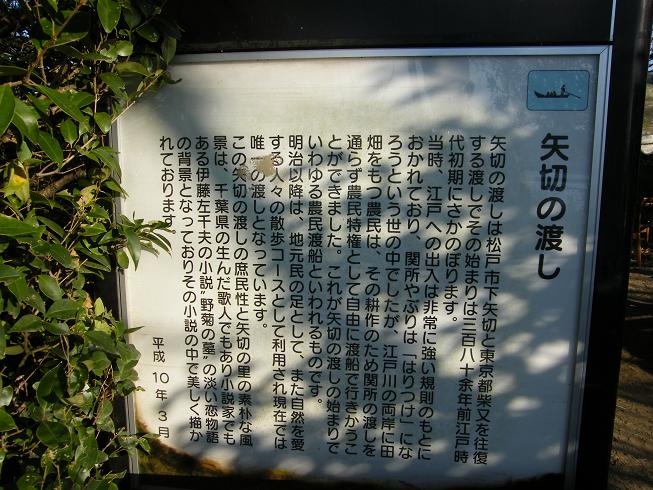 矢切の渡し
矢切の渡しは松戸市下矢切と東京都柴又を往復
する渡しでその始まりは三百八十余年前江戸時
代初期にさかのぼります。
当時、江戸への出入は非常に強い規則のもとに
おかれており、関所やぶりは「はりつけ」にな
ろうという世の中でしたが、江戸川の両岸に田
畑をもつ農民は、その耕作のため関所の渡しを
通らず農民特権として自由に渡船で行きかうこ
とができました。これが矢切の渡しの始まりで
いわゆる農民渡船といわれるものです。
明治以降は、地元民の足として、また自然を愛
する人々の散歩コースとして利用され現在では
唯一の渡しとなっています。
この矢切の渡しの庶民性と矢切の里の素朴な風
景は、千葉県の生んだ歌人でもあり小説家でも
ある伊藤左千夫の小説"野菊の墓"の淡い恋物語
の背景となっておりその小説の中で美しく描か
れております。
平成10年3月